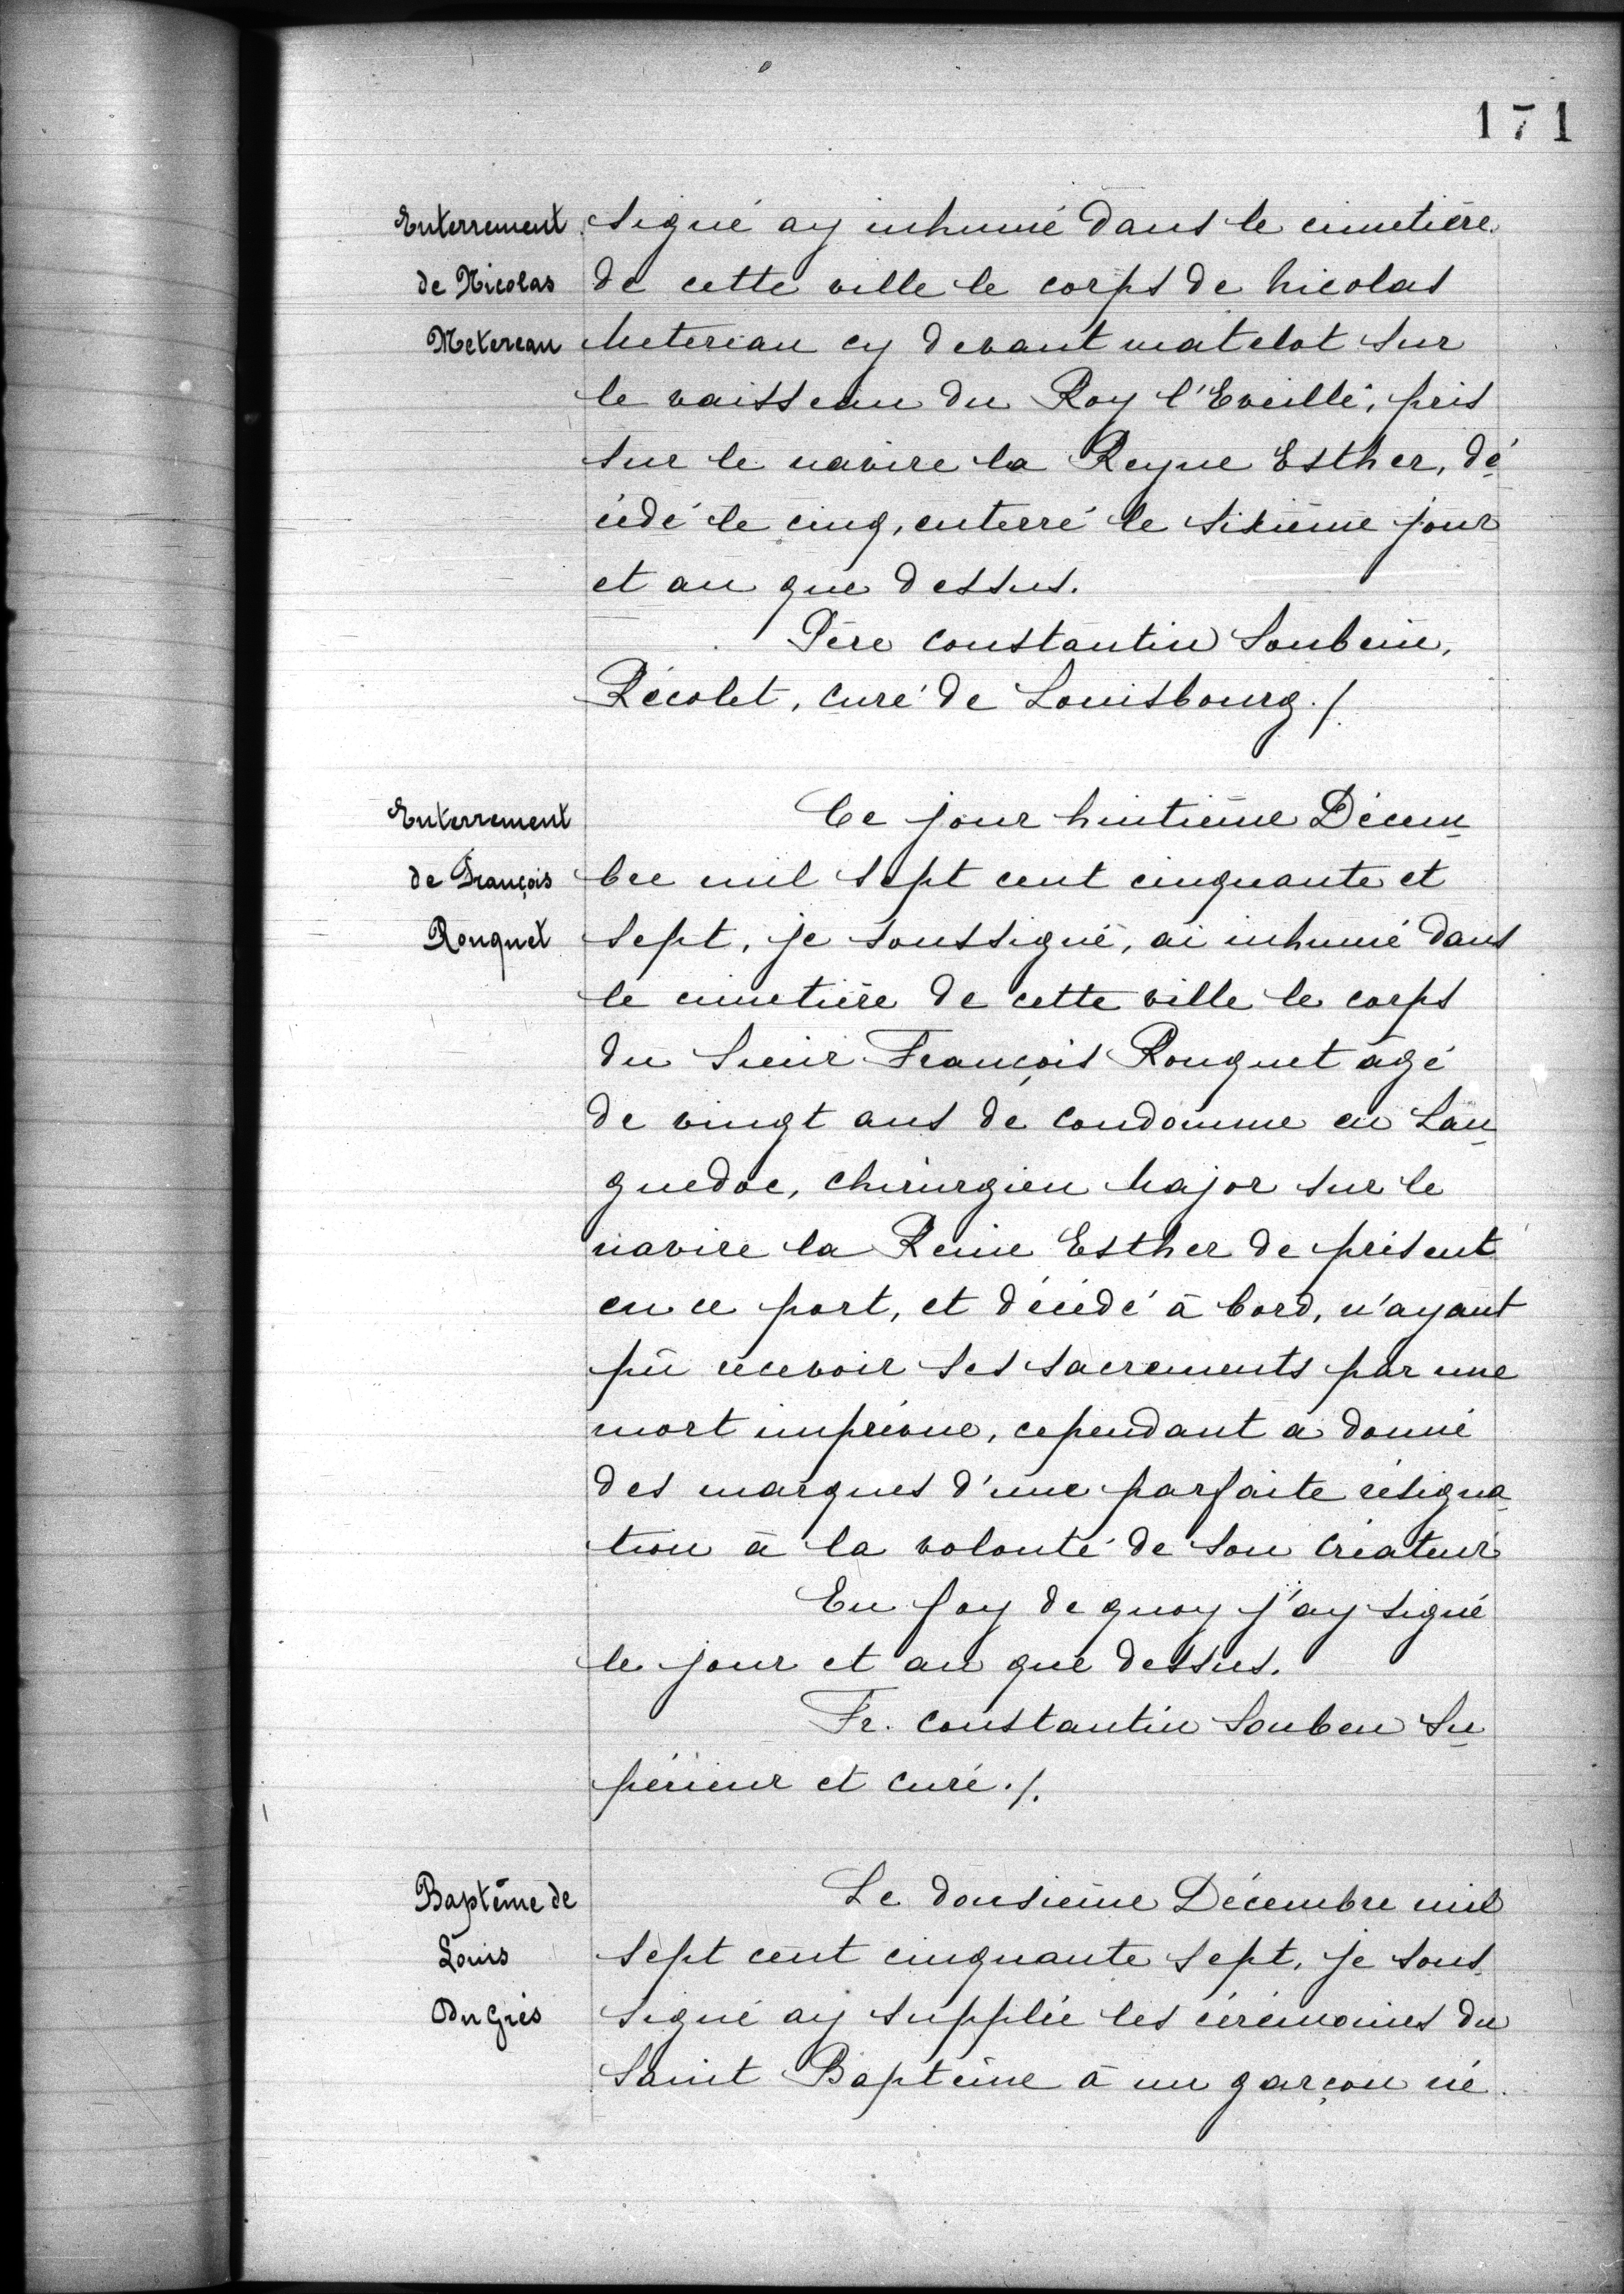 171
Enterrement
de Nicolas
Metereau
signé ay inhumé dans le cimetière
de cette ville le corps de Nicolas
Meteriau cy devant matelot sur
le vaisseau du Roy l'Eveillé, pris
sur le navire la Reyne Esther, dé
cédé le cinq, enterré le sixième jour
et an que dessus.
Père Constantin Soubein,
Récolet, curé de Louisbourg ./.
Enterrement
de François
Rouquet
Ce jour huitième Décem
bre mil sept cent cinquante et
sept, je soussigné, ai inhumé dans
le cimetière de cette ville le corps
du Sieur François Rouquet âgé
de vingt ans de Condomme en Lan
guedoc, chirurgien Major sur le
navire la Reine Esther de présent
en ce port, et décédé à bord, n'ayant
pû recevoir ses sacrements par une
mort imprévue, cependant a donné
des marques d'une parfaite résigna
tion à la volonté de son Créateur
En foy de quoy j'ay signé
le jour et an que dessus.
Fr. Constantin Souben Su
périeur et curé ./.
Baptême de
Louis
Du Grès
Le dousième Décembre mil
sept cent cinquante sept, je sous
signé ay supplée les cérémonies du
Saint Baptême à un garçon né